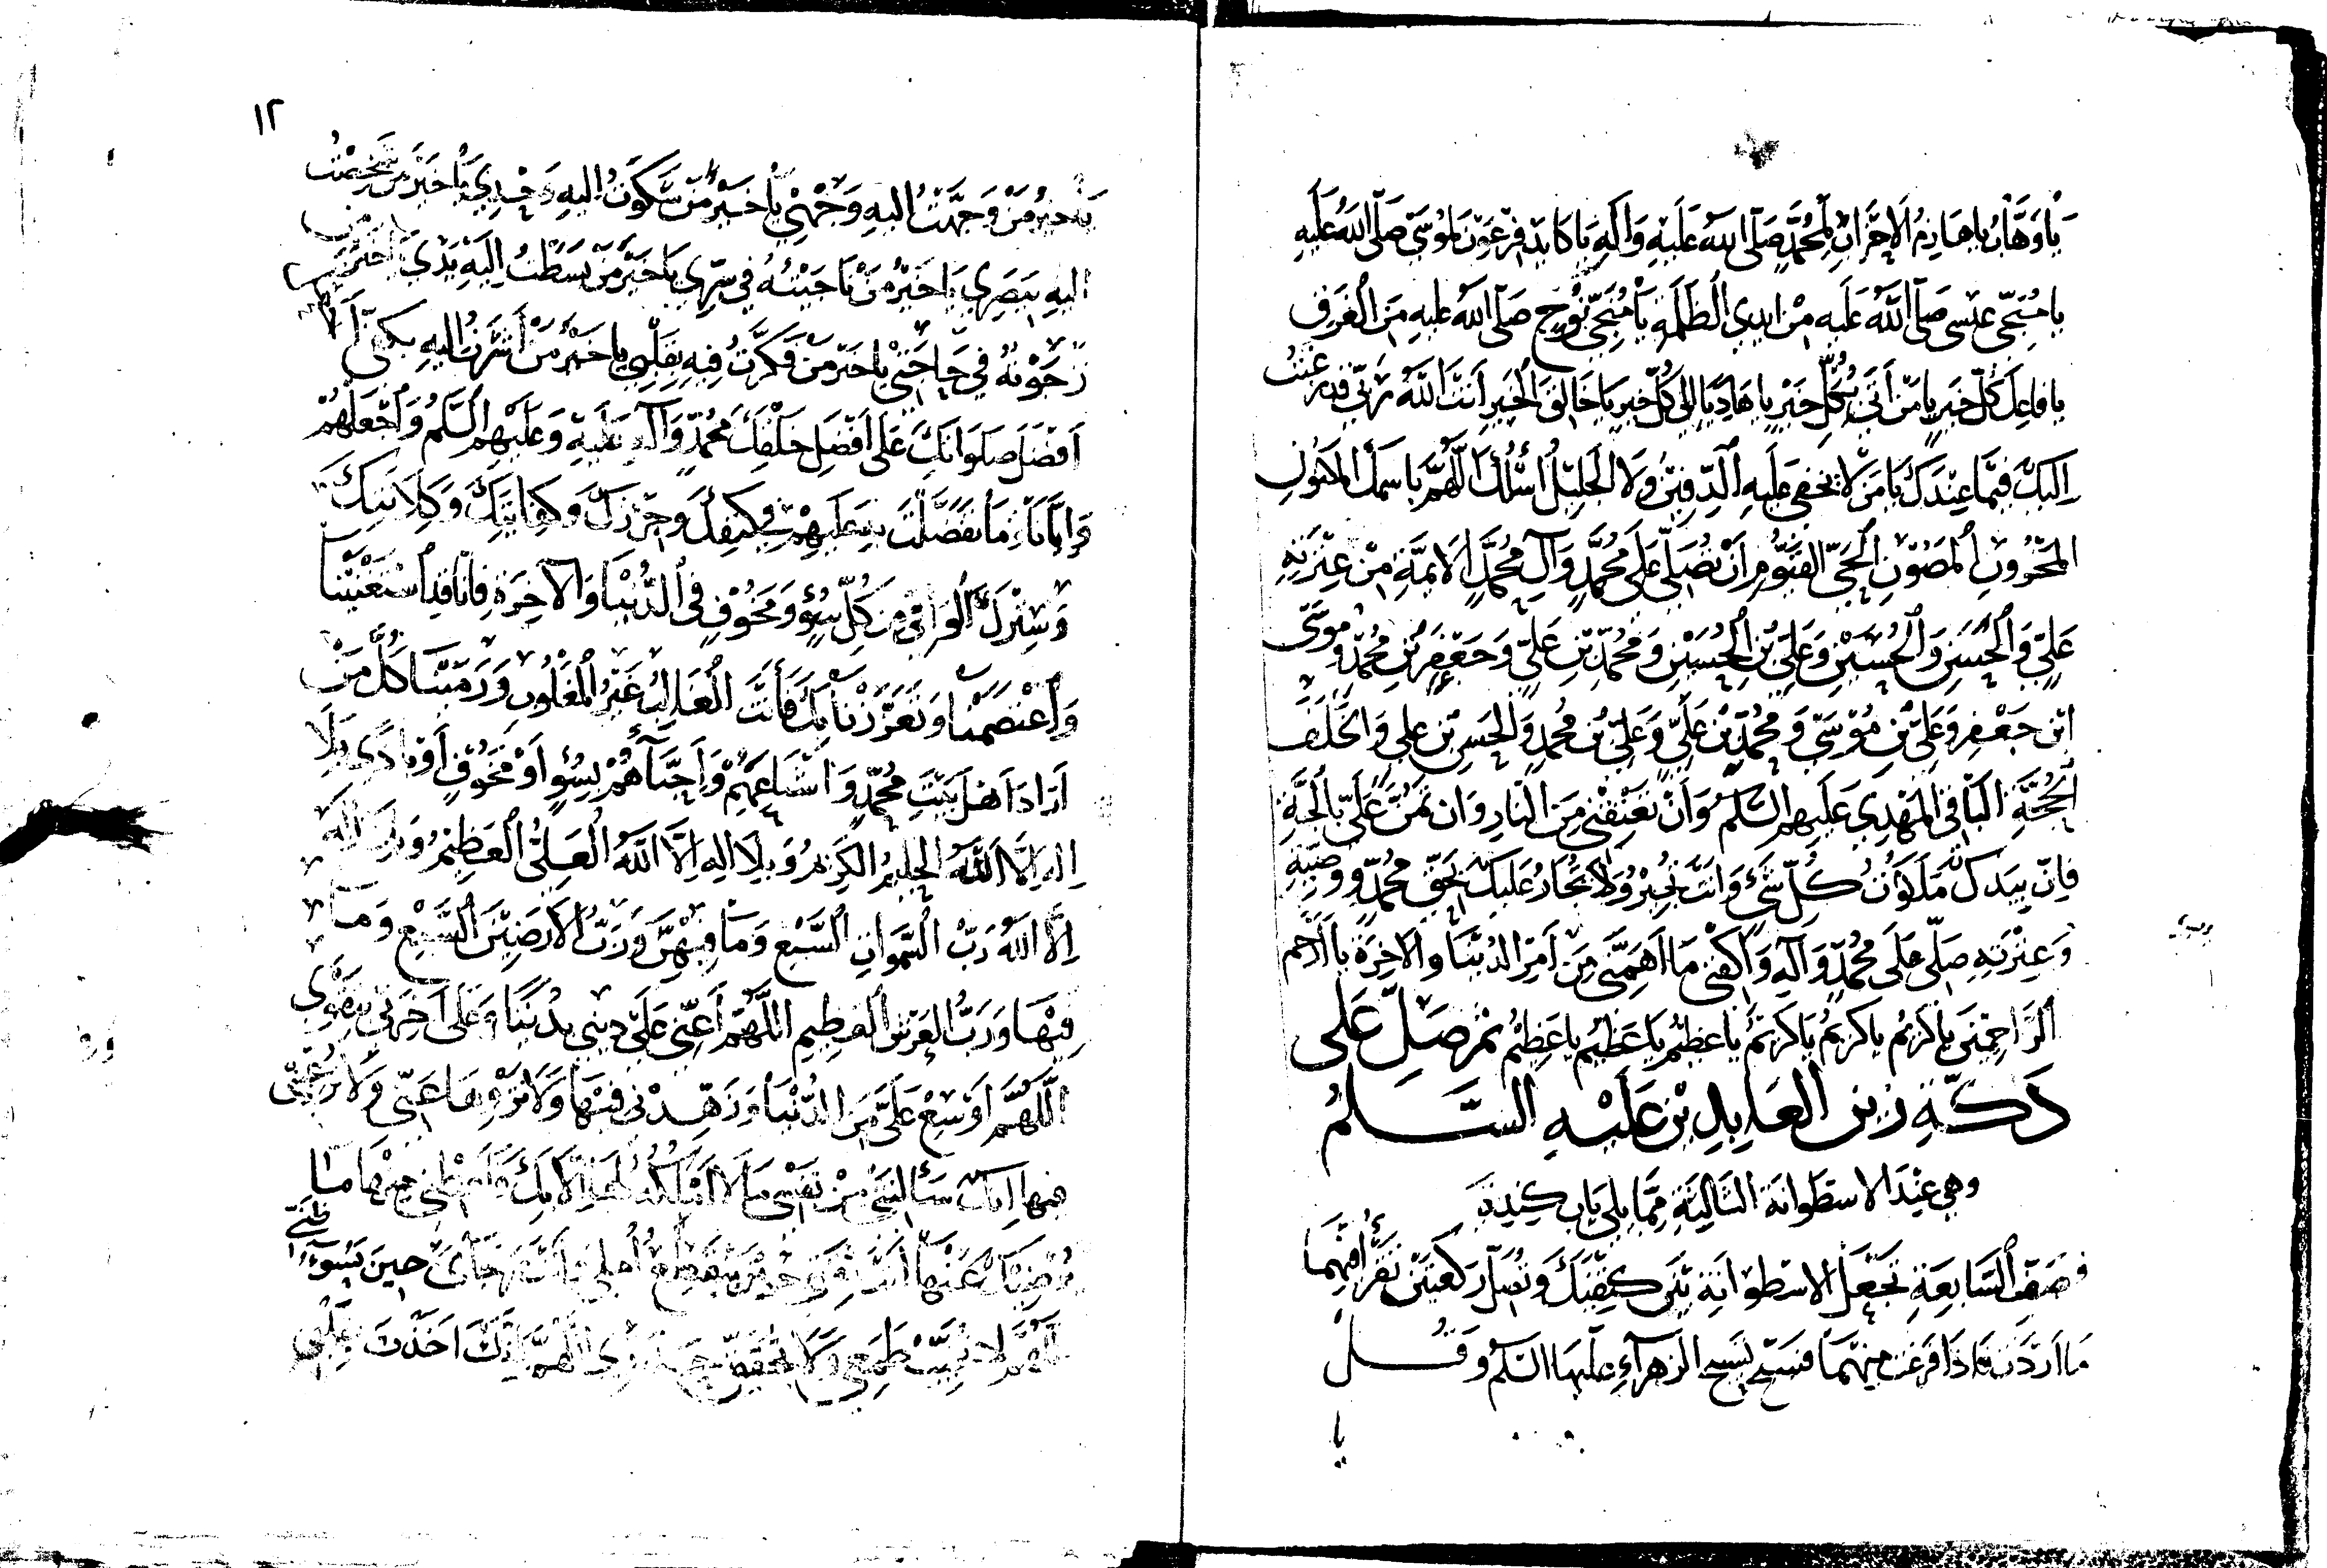 يا وهاب يا هازم الاحزاب لمحمد صلى الله عليه وآله يا كابد فرعون لموسى صلى الله عليه
يا منجي عيسى صلى الله عليه من ايدي الظلمة يا منجي نوح صلى الله عليه من الغرق
يا فاعل كل خير يا من أتى بكل خير يا هاديا الى كل خير يا خالق الخير أنت الله ربي قد رغبت
اليك فيما عندك يا من لا يخفى عليه الدقيق ولا الجليل اسئلك اللهم باسمك المكنون
المخزون المصون الحي القيوم أن تصلي على محمد وآل محمد الائمة من عترته
علي والحسن والحسين وعلي بن الحسين ومحمد بن علي وجعفر بن محمد وموسى
ابن جعفر وعلي بن موسى ومحمد بن علي وعلي بن محمد والحسن بن علي والخلف
الحجة الباقي المهدي عليهم السلم وأن تعتقني من النار وان تمن علي بالجنة
فان بيدك ملكوت كل شيء وانت تجير ولا يجار عليك بحق محمد ووصيه
وعترته صلى على محمد وآله واكفني ما اهمني من أمر الدنيا والاخرة يا ارحم
الراحمين يا كريم يا كريم يا كريم يا عظيم يا عظيم يا عظيم ثم صل على
دكة زين العابدين عليه السلم
وهي عند الاسطوانة الثالثة مما يلي باب كندة
في صف السابعة تجعل الاسطوانة بين كتفيك وتصل ركعتين تقرأ فيهما
ما اردت فاذا فرغت منهما فسبح تسبيح الزهراء عليها السلم وقل
يا
١٢
يا خير من وجهت اليه وجهي يا خير من شكوت اليه وحدي يا خير من شخصت
اليه ببصري يا خير من ناجيته في سري يا خير من بسطت اليه يدي يا خير من
رجوته في حاجتي يا خير من فكرت فيه بقلبي يا خير من أشرت اليه بكفي
أفضل صلواتك على أفضل خلقك محمد وآله عليه وعليهم السلم واجعلهم
وايانا ما تفضلت به عليهم في كنفك وحرزك وكفايتك وكلائتك
وسترك الواقي من كل سوء ومخوف في الدنيا والاخرة فانا قد استغنينا
واعتصمنا وتعززنا بك فأنت الغالب غير المغلوب ورمينا كل من
أراد اهل بيت محمد واشياعهم وأحباءهم بسوء او مخوف أو اذى بلا
اله الا الله الحليم الكريم وبلا اله الا الله العلي العظيم
الا الله رب السموات السبع وما فيهن ورب الارضين السبع وما
فيها ورب العرش العظيم اللهم أعني على ديني بدنيا وعلى آخرتي بتقوى
اللهم اوسع علي من الدنيا وزهدني فيها ولا تزوها عني ولا ترغبني
فيها انك سألتني من نفسي ما لا املكه الا بك فاعطني منها ما
يرضيك عنها أنت ثقتي حين ينقطع أملي وانت رجائي حين يسوء ظني
اللهم لا تخيب طمعي ولا تحقق حذري اللهم انك اخذت بقلبي